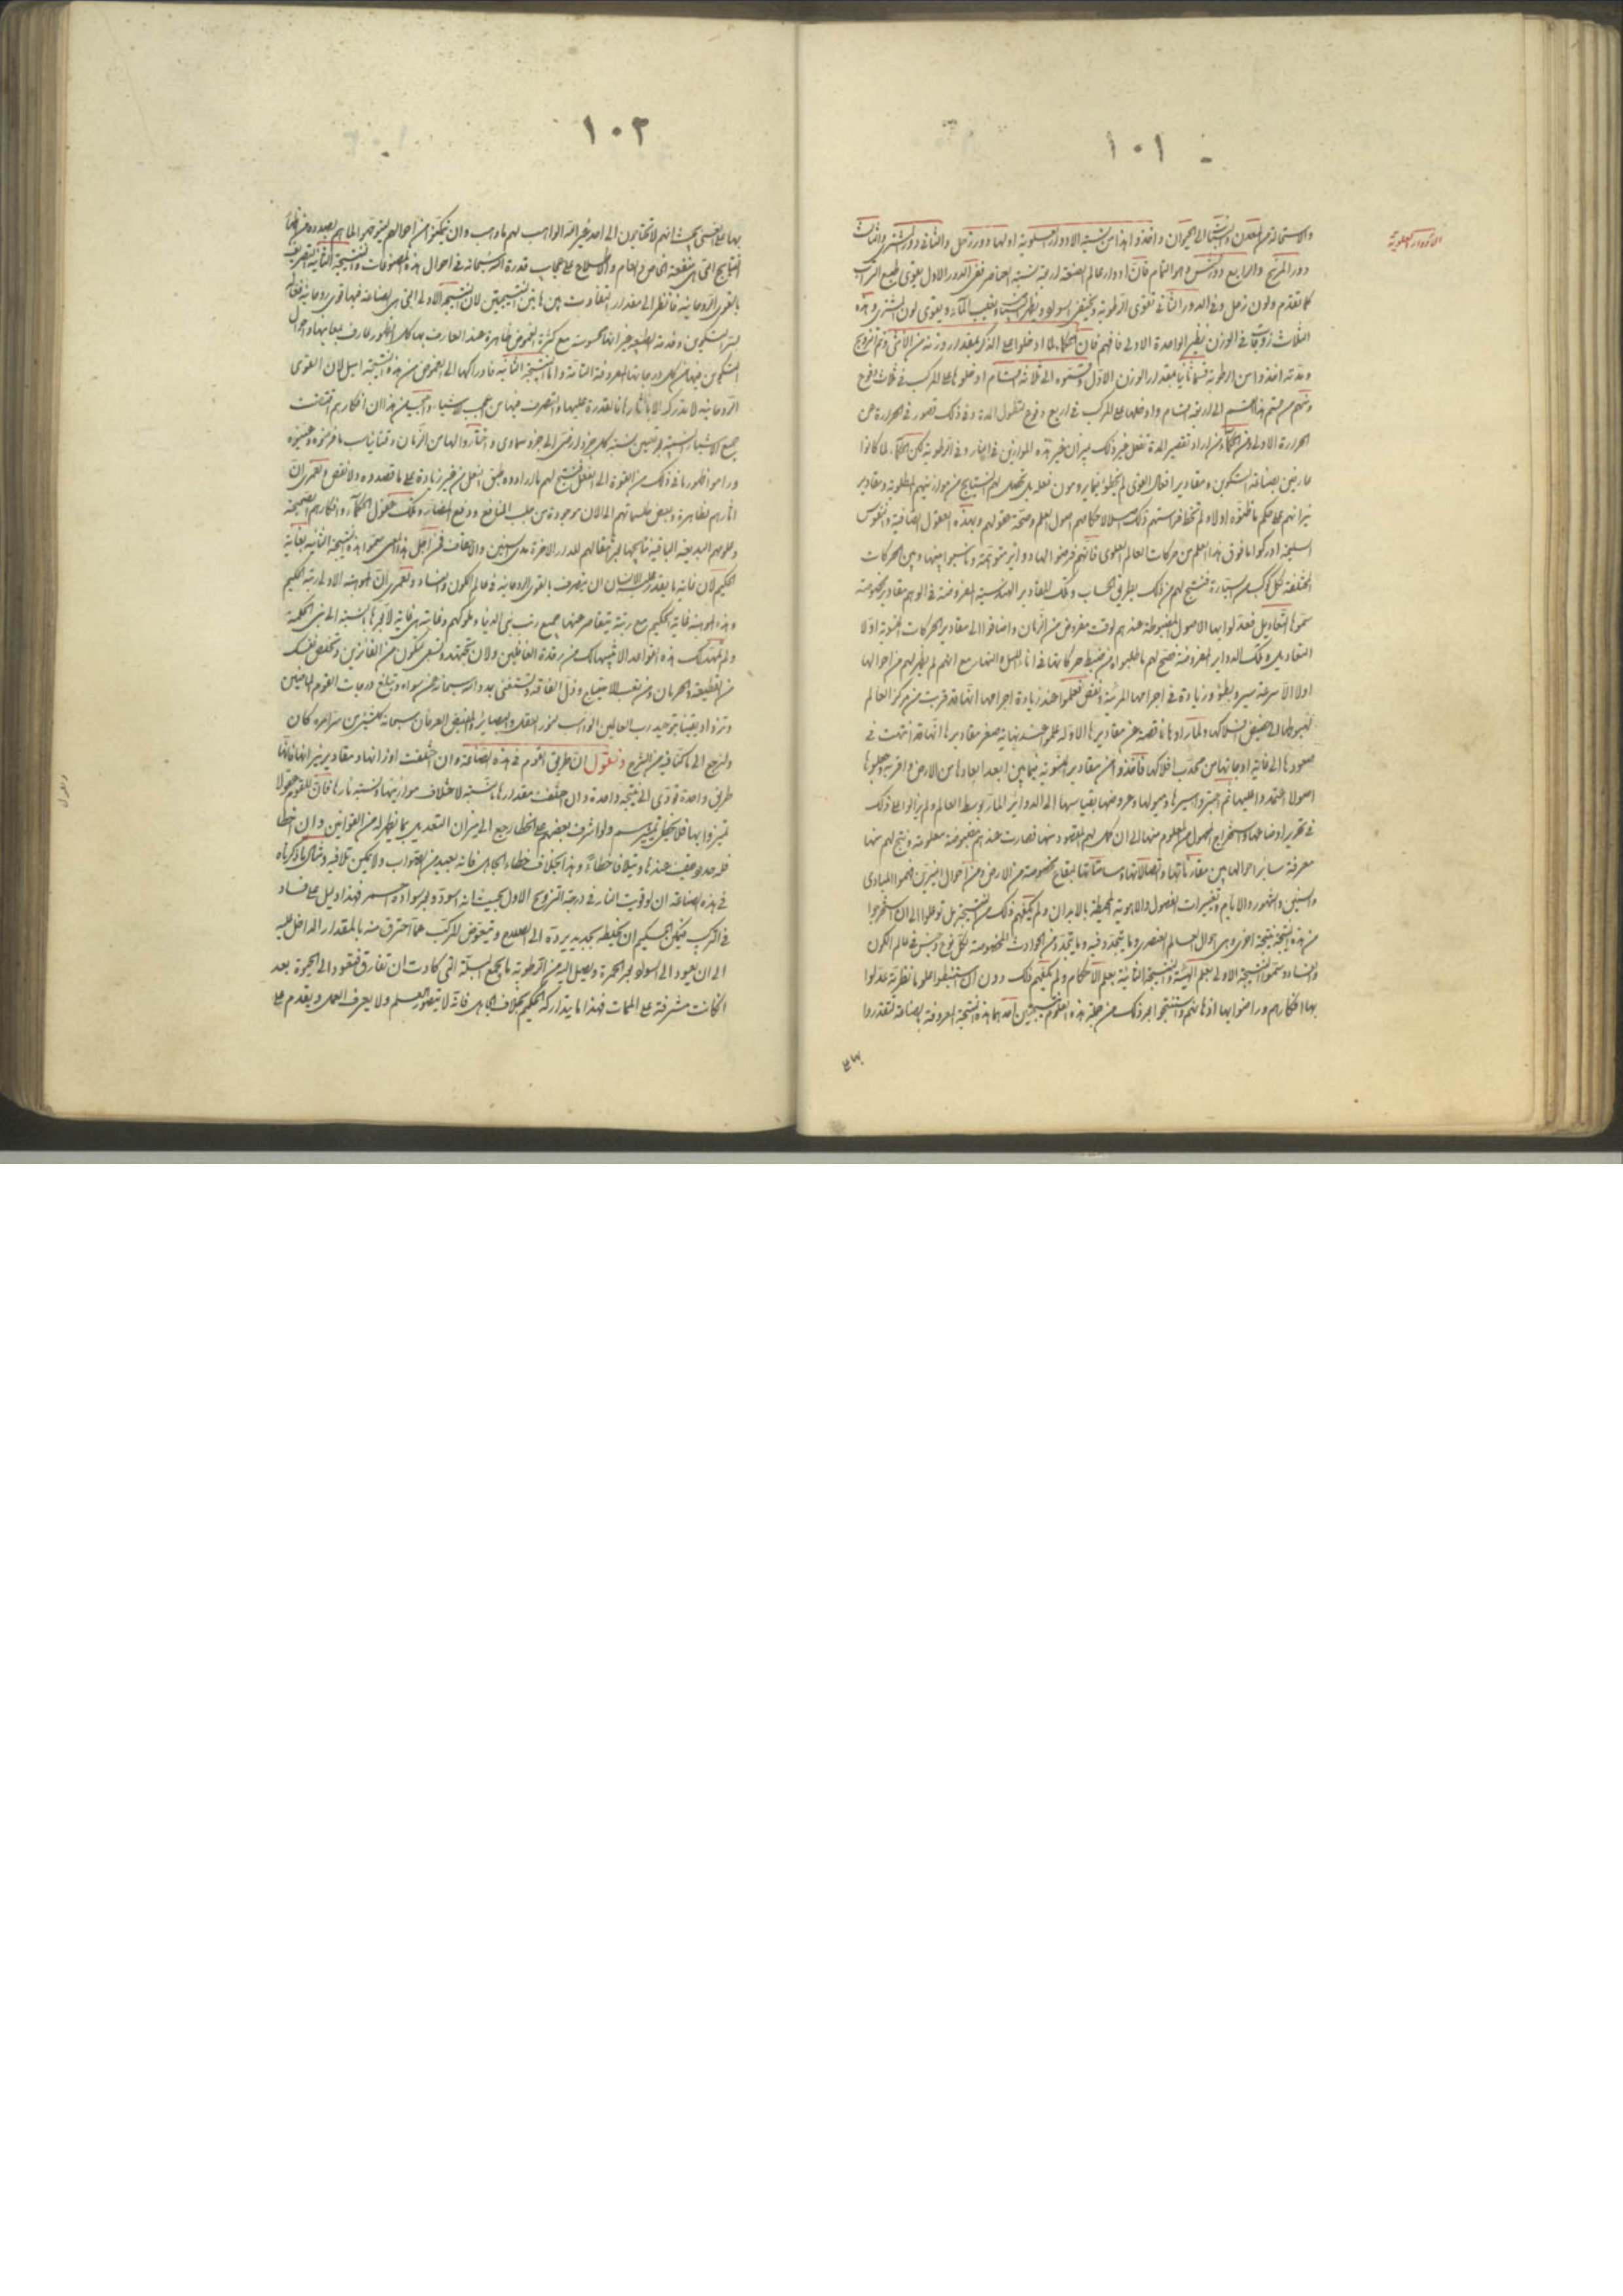 ١٠١
الادوار العلوية
والاستحالة من المعدن والنبات الى الحيوان واخذوا هذا من نسبة الادوار العلوية اولها دور زحل والثانى دور المشترى والثالث
دور المريخ والرابع دور الشمس هو التمام فان ادوار عالم الصنعة اربعة بنسبة العناصر ففى الدور الاول يقوى طبع التراب
كما تقدم ولون زحل وفى الدور الثانى تقوى الرطوبة ويقوى لون المشترى وهذه
الثلاث زوجات فى الوزن نظير الواحدة الاولى فافهم فان الحكماء لما ادخلوا على الذكر بمقدار وزنه من الانثى وتم التزويج
ومدته اخذوا من الرطوبة قسما ثانيا بمقدار الوزن الاول وقسموه الى ثلاثة اقسام ادخلوها على المركب فى ثلاث دفوع
ومنهم من قسم هذا القسم الى اربعة اقسام وادخلها على المركب فى اربع دفوع لتطول المدة وفى ذلك قصور فى الحرارة عن
الحرارة الاولى ومن الحكماء من اراد تقصير المدة ففعل غير ذلك بميزان غير هذه الموازين فى النار وفى الرطوبة لكن الحكماء لما كانوا
عارفين بصناعة التكوين ومقادير افعال القوى
نيرانهم على حكم ما ظنوه اولا ولم تخط فراستهم ذلك اصول العلم وصحة عقولهم وبهذه العقول الصافية والنفوس
السليمة ادركوا ما فوق هذا العلم من حركات العالم العلوى فانهم فرضوا لها دواير متوهمة وناسبوا بينها وبين الحركات
المختلفة لكل كوكب من السيارة فنتج لهم من ذلك بطريق الحساب وتلك المقادير الهندسية المفروضة فى الوهم مقادير مخصوصة
سموها التعاديل فعدلوا بها الاصول المضبوطة عندهم لوقت مفروض من الزمان واضافوا الى مقادير الحركات اولا
التعاديل وتلك الدواير المفروضة فصح لهم ما طلبوه من ضبط حركاتها فى اناء الليل والنهار مع انهم لم يظهر لهم من احوالها
اولا الا سرعة سير وبطؤ وزيادة فى اجرامها المرئية ونقص فعلموا عند زيادة اجرامها انها قد قربت من مركز العالم
لهبوطها الى حضيض افلاكها ولما راوها ناقصة عن مقاديرها الاولة علموا عند نهاية صغر مقاديرها انها قد انتهت فى
صعودها الى غاية اوجاتها من محدب افلاكها فاخذوا من مقادير فيما بين ابعد ابعادها من الارض واقربه وجعلوها
اصولا اعتمدوا عليها ثم اعتبروا سيرها وميولها وعروضها بقياسها الى الدواير المارة بوسط العالم ولم يزالوا على ذلك
فى تحرير اوضاعها واستخراج المجهول من المعلوم منها الى ان كمل لهم المقصود منها فصارت عندهم مضبوطة معلومة ونتج لهم منها
معرفة ساير احوالها بين مقارناتها واتصالاتها ومسامتاتها لبقاع مخصوصة من الارض ومن احوال النيرين فهموا المبادى
والسنين والشهور والايام وتغييرات الفصول والاهوية المحيطة بالابدان ولم يكفهم ذلك من النتيجة بل توصلوا الى ان استخرجوا
من هذه النتيجة نتيجة اخرى وهى احوال العالم العنصرى وما يتجدد فيه وما يتجدد من الحوادث المخصوصة لكل نوع وجنس فى عالم الكون
والفساد وسموا النتيجة الاولى بعلم الهيئة والنتيجة الثانية بعلم الاحكام ولم يكفهم ذلك دون ان استنبطوا علوما نظرية عدلوا
بها افكارهم وراضوا بها اذهانهم واستنتجوا بعد ذلك من جملة هذه العلوم نتيجتين احدهما هذه النتيجة المعروفة بالصناعة لتقتدروا
بها على
١٠٢
بها على الغنى بحيث انهم لا يحتاجون الى احد غير الله الواهب لهم ما وهب وان يتمكنوا من احوالهم ليتوجهوا الى ما هم بصدده من
النتايج التى هى منفعة الخاص والعام والاطلاع على عجايب قدرة الله سبحانه فى احوال هذه المصنوعات والنتيجة الثانية التصريف
بالقوى الروحانية فانظر الى مقدار التفاوت بين هاتين النتيجتين لان النتيجة الاولى التى هى الصناعة فيها قوى روحانية فعالة
لسر التكوين وخدمة الطبيعة غير انها محسوسة مع كثرة الغموض ظاهرة عند العارف بها كل الظهور عارف بمعانيها واحوال
التكوين فيها من كل درجاتها المعروفة التامة واما النتيجة الثانية فادراكها الى الغموض من هذه النتيجة اميل لان القوى
الروحانية لا تدرك الا بآثارها فالقدرة عليها والتصرف فيها من اعجب الاشياء واعجب من هذا ان افكارهم اقتضت
جميع الاشياء النسبية بتعيين نسبة كل جزء ارضى الى جزء سماوى واختاروا لها من الزمان وقتا يناسب ما فرضوه وعينوه
وراموا ظهور ما فى ذلك من القوة الى الفعل فنتج لهم ما ارادوه طبق الفعل من غير زيادة على ما قصدوه ولا نقص ولعمرى ان
اثارهم ظاهرة وبعض طلسماتهم الى الان موجودة من جلب المنافع ودفع المضار وتلك عقول الحكماء وافكارهم الصحيحة
وعلومهم البديعة الباقية نتايجها بعد انتقالهم للدار الاخرة مدى السنين والاحقاف فمن اجل هذا المعنى سموا هذه النتيجة الثانية بغاية
الحكيم لان غاية ما يقدر عليه الانسان ان يتصرف بالقوى الروحانية فى عالم الكون والفساد ولعمرى ان الموهبة الاولى رتبة الحكيم
وهذه الموهبة غاية الحكيم مع رتبة يتقاصر عنها جميع رتب بنى الدنيا وملوكهم وغايته هى غاية لا بعدها بالنسبة الى بنى الحكمة
ولم نمهد لك هذه القواعد الا لننبهك من رقدة الغافلين ولان تجتهد وتسعى لتكون من الفائزين وتخلص نفسك
من القطيعة والحرمان ومن تعب الاحتياج وذل الفاقة وتستغنى بمدد الله سبحانه عن سواه وتبلغ درجات القوم الواصلين
وتزداد يقينا بتوحيد رب العالمين الواهب لنور العقل والبصائر المفيض العرفان سبحانه
ولنرجع الى ما كنا فيه من الشرح ونقول ان طريق القوم فى هذه الصناعة وان اختلفت اوزانها ومقادير نيرانها فانها
طريق واحدة تؤدى الى نتيجة واحدة وان اختلفت مقدارها بالنسبة لاختلاف موازينها ونسبة نارها فان للقوم اصولا
تميزوا بها ولو اشرف بعضهم على الخطا رجع الى ميزان التعديل بما يظهر له من القوانين وان اخطأ
فله حد يقف عندها ويتلافى خطاءه وهذا بخلاف خطاء الجاهل فانه بعيد من الصواب ولا يمكن تلافيه ومثال ما ذكرناه
فى هذه الصناعة ان لو قويت النار فى درجة التزويج الاول بحيث انه اسود وبعد سواده احمر فهذا دليل على فساد
فى المركب فيمكن الحكيم ان يخلطه بجديد يرده الى الصلاح ويتعوض المركب عما احترق منه بالمقدار الداخل عليه
الى ان يعود الى السواد بعد الحمرة ويصل اليه من الرطوبة ما يجمع البلة التى كادت ان تفارق فتعود الى الحيوة بعد
ان كانت مشرفة على الممات فهذا ما يتداركه الحكيم بخلاف الجاهل فانه لا يتصور العلم ولا يعرف العمل ويقدم على